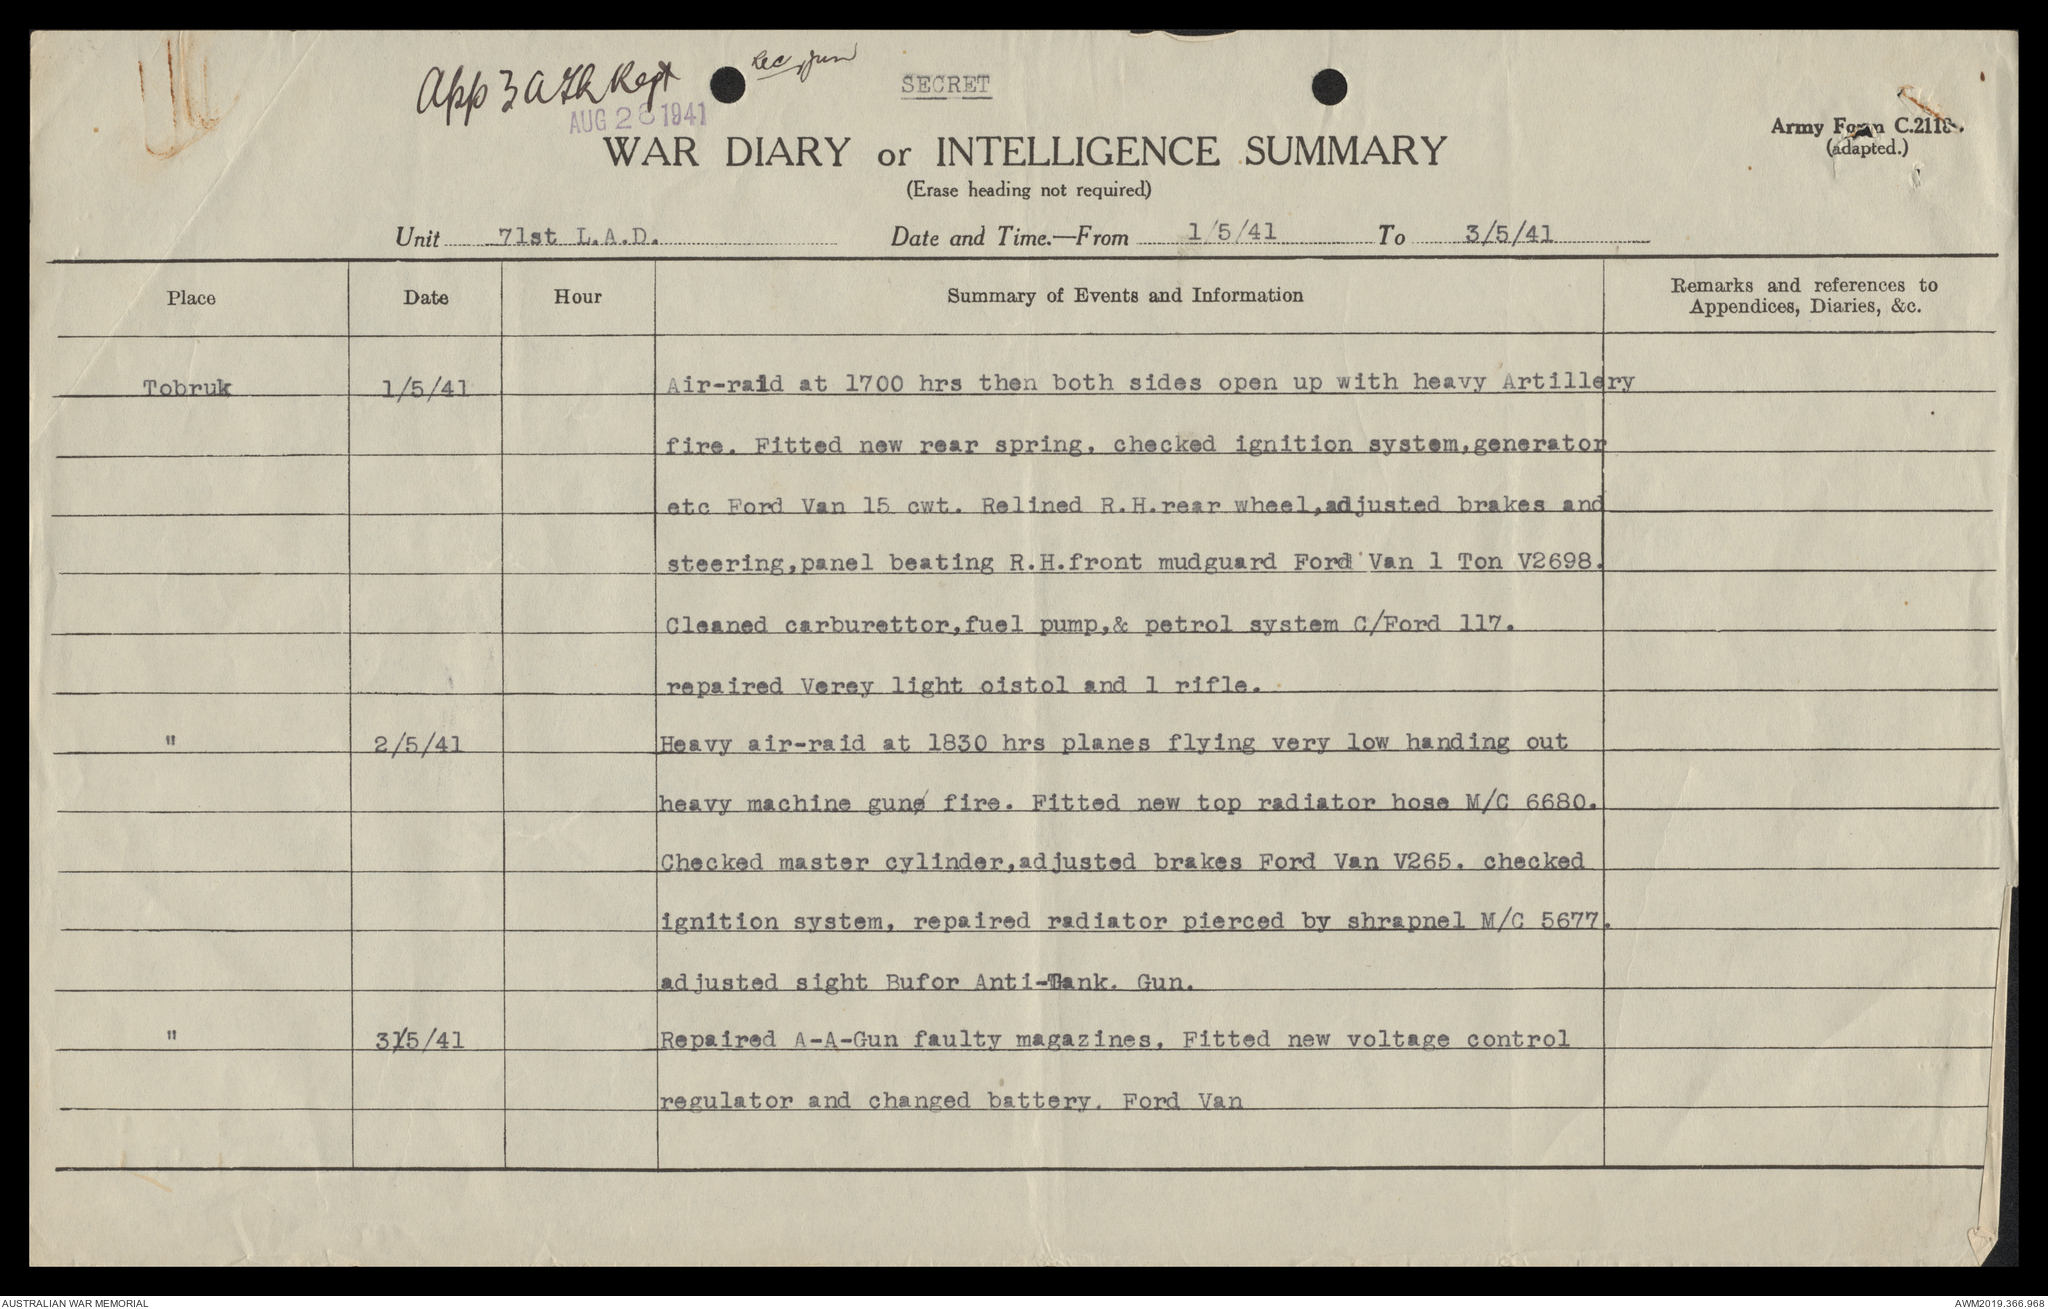 App 3 A Tk Regt
AUG 28 1941
SECRET
Army Form C.2118.
(adapted.)
WAR DIARY or INTELLIGENCE SUMMARY
(Erase heading not required)
Unit 71st L.A.D. Date and Time.—From 1/5/41 To 3/5/41
Place Date Hour Summary of Events and Information Remarks and references to
Appendices, Diaries, &c.
Tobruk 1/5/41 Air-raid at 1700 hrs then both sides open up with heavy Artillery
fire. Fitted new rear spring, checked ignition system,generator
etc Ford Van 15 cwt. Relined R.H.rear wheel,adjusted brakes and
steering,panel beating R.H.front mudguard Ford Van 1 Ton V2698.
Cleaned carburettor,fuel pump,& petrol system C/Ford 117.
repaired Verey light oistol and 1 rifle.
" 2/5/41 Heavy air-raid at 1830 hrs planes flying very low handing out
heavy machine gun fire. Fitted new top radiator hose M/C 6680.
Checked master cylinder,adjusted brakes Ford Van V265. checked
ignition system, repaired radiator pierced by shrapnel M/C 5677.
adjusted sight Bufor Anti-Tank. Gun.
" 3/5/41 Repaired A-A-Gun faulty magazines, Fitted new voltage control
regulator and changed battery. Ford Van
AUSTRALIAN WAR MEMORIAL AWM2019.366.968